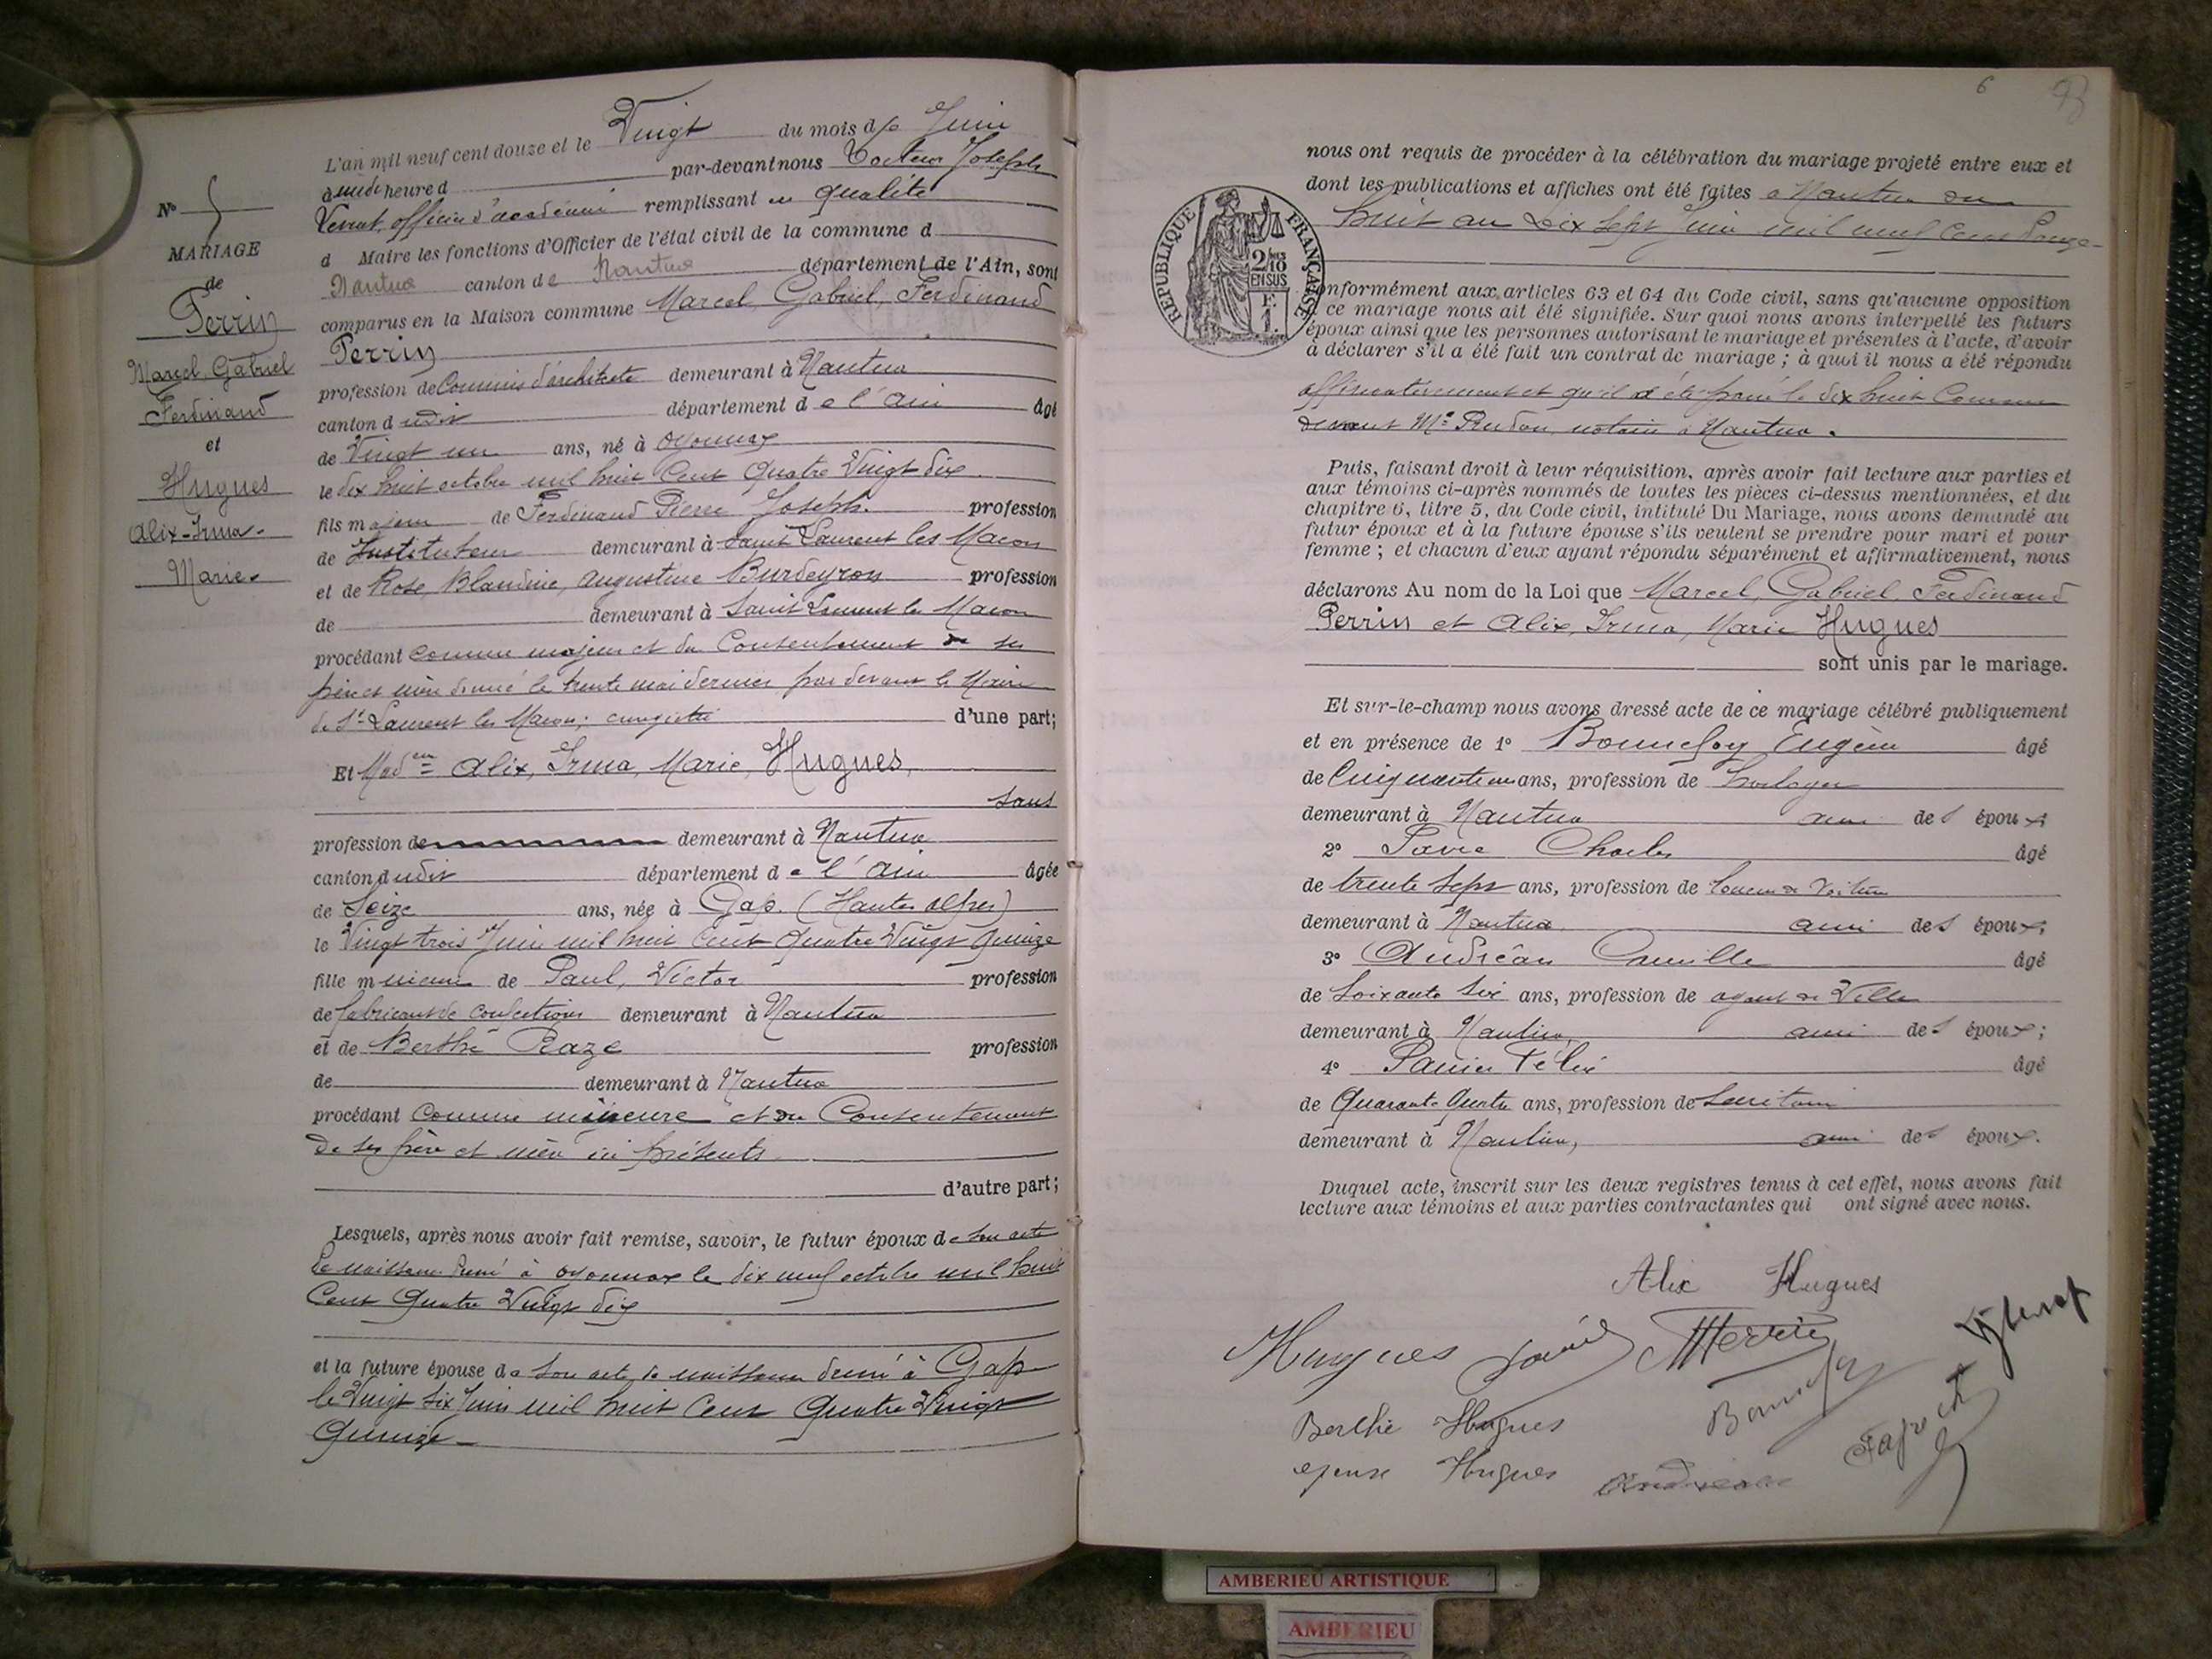 N° 5
MARIAGE
de
Perrin
Marcel Gabriel
Ferdinand
et
Hugues
Alix-Irma-
Marie
L'an mil neuf cent douze et le Vingt du mois de Juin
heure d par-devant nous Docteur Joseph
officier d'académie remplissant en qualité
d Maire les fonctions d'Officier de l'état civil de la commune d
Nantua canton de Nantua département de l'Ain, sont
comparus en la Maison commune Marcel, Gabriel, Ferdinand
Perrin
profession de Commis d'architecte demeurant à Nantua
canton dudit département de l'Ain âgé
de Vingt un ans, né à Oyonnax
le dix huit octobre mil huit Cent Quatre Vingt dix
fils majeur de Ferdinand Pierre Joseph profession
de Instituteur demeurant à Saint Laurent les Macon
et de Rose, Blandine, Augustine Burdeyron profession
de demeurant à Saint Laurent les Macon
procédant comme majeur et du Consentement de ses
père et mère donné le trente mai dernier par devant le Maire
de St Laurent les Macon; enregistré d'une part;
Et Madelle Alix, Irma, Marie, Hugues,
sans
profession de demeurant à Nantua
canton dudit département de l'Ain âgée
de Seize ans, née à Gap. (Hautes Alpes)
le Vingt trois Juin mil huit Cent Quatre Vingt Quinze
fille mineure de Paul, Victor profession
de fabricant de confections demeurant à Nantua
et de Berthe Raze profession
de demeurant à Nantua
procédant comme mineure et du Consentement
de ses père et mère ici présents
d'autre part;
Lesquels, après nous avoir fait remise, savoir, le futur époux de son acte
de naissance dressé à Oyonnax le dix neuf octobre mil huit
Cent Quatre Vingt dix
et la future épouse de son acte de naissance dressé à Gap
le Vingt six Juin mil huit Cent Quatre Vingt
Quinze
6
nous ont requis de procéder à la célébration du mariage projeté entre eux et
dont les publications et affiches ont été faites à Nantua du
huit au dix sept Juin mil neuf Cent douze
RÉPUBLIQUE FRANÇAISE
2/10
EN SUS
1 F.
conformément aux articles 63 et 64 du Code civil, sans qu'aucune opposition
à ce mariage nous ait été signifiée. Sur quoi nous avons interpellé les futurs
époux ainsi que les personnes autorisant le mariage et présentes à l'acte, d'avoir
à déclarer s'il a été fait un contrat de mariage ; à quoi il nous a été répondu
affirmativement et qu'il a été passé le dix huit Courant
devant Me Rudon, notaire à Nantua.
Puis, faisant droit à leur réquisition, après avoir fait lecture aux parties et
aux témoins ci-après nommés de toutes les pièces ci-dessus mentionnées, et du
chapitre 6, titre 5, du Code civil, intitulé Du Mariage, nous avons demandé au
futur époux et à la future épouse s'ils veulent se prendre pour mari et pour
femme ; et chacun d'eux ayant répondu séparément et affirmativement, nous
déclarons Au nom de la Loi que Marcel, Gabriel, Ferdinand
Perrin et Alix, Irma, Marie Hugues
sont unis par le mariage.
Et sur-le-champ nous avons dressé acte de ce mariage célébré publiquement
et en présence de 1° Bonnefoy Eugène âgé
de Cinquante un ans, profession de horloger
demeurant à Nantua ami des époux;
2° Charles âgé
de trente sept ans, profession de loueur de voitures
demeurant à Nantua ami des époux;
3° Andréan Camille âgé
de Soixante six ans, profession de agent de Ville
demeurant à Nantua, ami des époux;
4° Félix âgé
de Quarante Quatre ans, profession de Secrétaire
demeurant à Nantua, ami des époux.
Duquel acte, inscrit sur les deux registres tenus à cet effet, nous avons fait
lecture aux témoins et aux parties contractantes qui ont signé avec nous.
Alix Hugues
Hugues MPerrin
Berthe Hugues Bonnefoy
épouse Hugues Andréan
AMBERIEU ARTISTIQUE
AMBERIEU